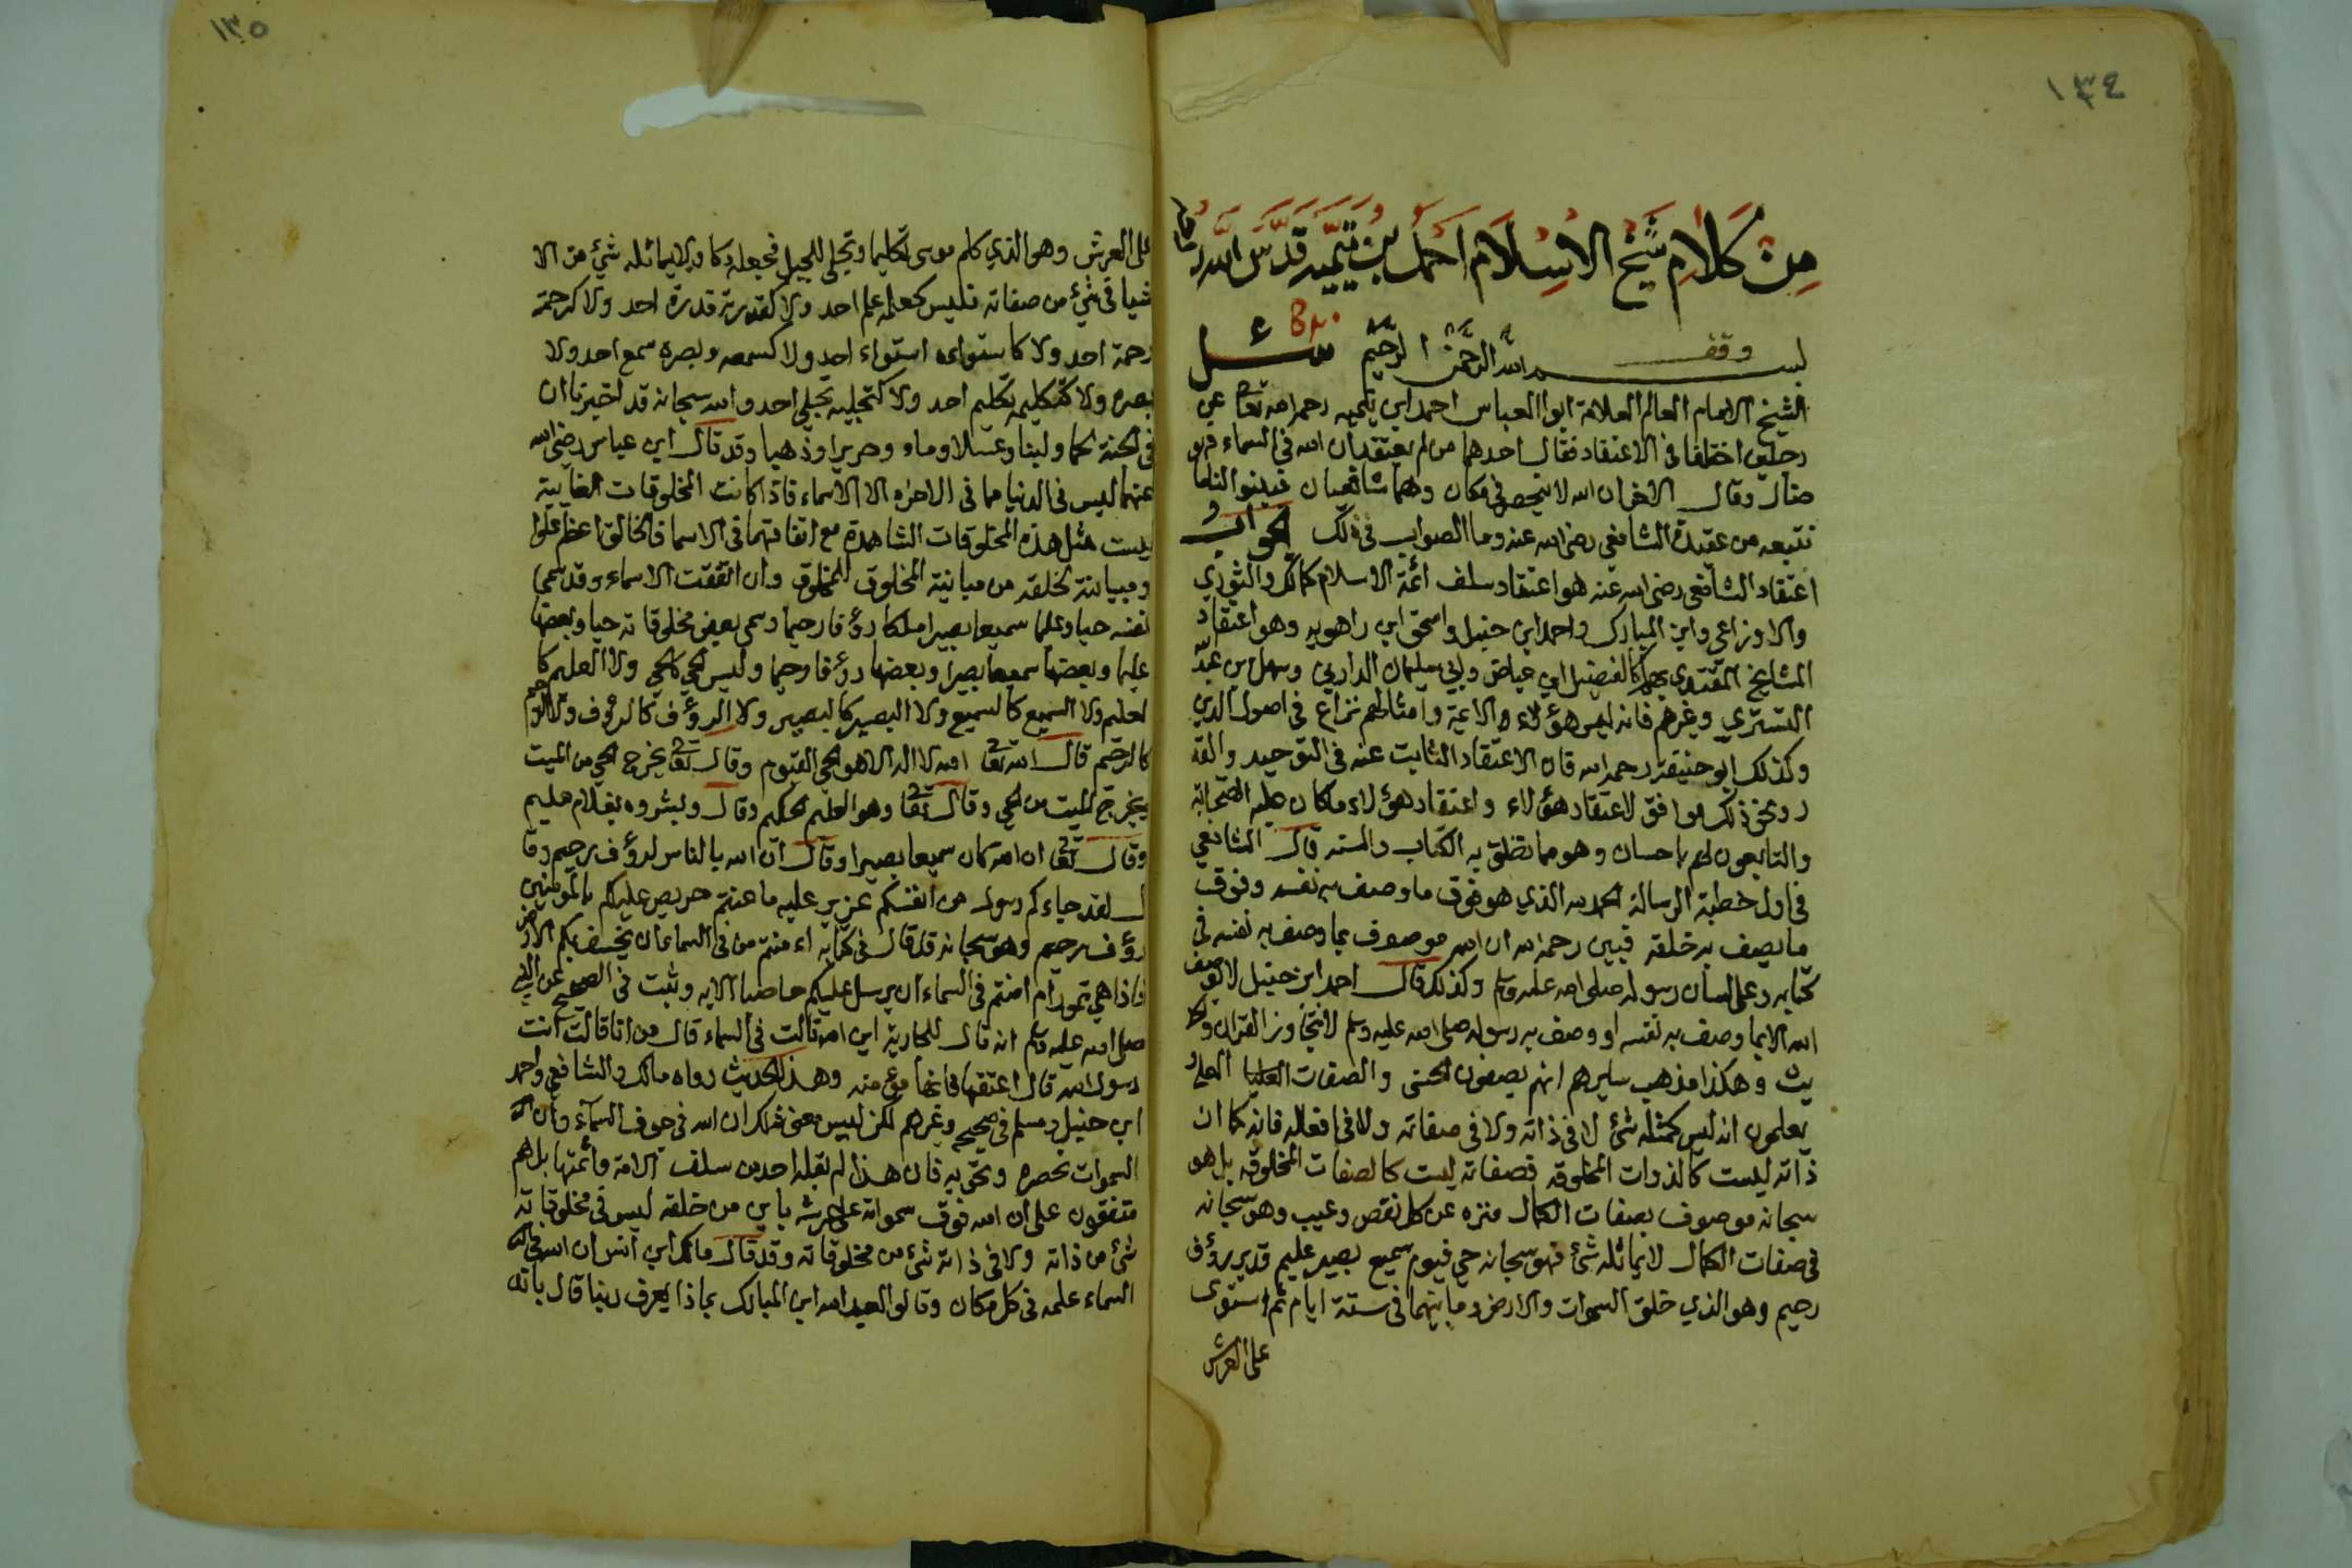 ١٣٤
من كلام شيخ الاسلام احمد بن تيميه قدس الله
وقف
بسم الله الرحمن الرحيم سئل
الشيخ الامام العالم العلامة ابوا العباس احمد ابن تيميه رحمه الله تعا عن
رجلين اختلفا في الاعتقاد فقال احدهما من لم يعتقد ان الله في السماء فهو
ضال وقال الاخر ان الله لا ينحصر في مكان وهما شافعيان فبينوا لنا ما
نتبعه من عقيدة الشافعي رضي الله عنه وما الصواب في ذلك الجواب
اعتقاد الشافعي رضي الله عنه هو اعتقاد سلف ائمة الاسلام كمالك والثوري
والاوزاعي وابن المبارك واحمد ابن حنبل واسحق ابن راهويه وهو اعتقاد
المشايخ المقتدى بهم كالفضيل ابن عياض وابي سليمان الداراني وسهل بن عبد الله
التستري وغيرهم فانه ليس هؤلاء الائمة وامثالهم نزاع في اصول الدين
وكذلك ابو حنيفة رحمه الله فان الاعتقاد الثابت عنه في التوحيد والقد
ر ونحو ذلك موافق لاعتقاد هؤلاء واعتقاد هؤلاء ما كان عليه الصحابة
والتابعون لهم باحسان وهو مما نطق به الكتاب والسنه قال الشافعي
في اول خطبة الرسالة الحمد لله الذي هو فوق ما وصف به نفسه وفوق
ما يصف به خلقه فبين رحمه الله ان الله موصوف بما وصف به نفسه في
كتابه وعلى لسان رسوله صلى الله عليه وسلم وكذلك قال احمد ابن حنبل لا يوصف
الله الا بما وصف به نفسه او وصف به رسوله صلى الله عليه وسلم لا نتجاوز القران والحد
يث وهكذا مذهب سايرهم انهم يصفون الحسنى والصفات العليا
يعلمون انه ليس كمثله شئ لا في ذاته ولا في صفاته ولا في افعاله فانه كما ان
ذاته ليست كالذوات المخلوقه فصفاته ليست كالصفات المخلوقه بل هو
سبحانه موصوف بصفات الكمال منزه عن كل نقص وعيب وهو سبحانه
في صفات الكمال لا يماثله شئ فهو سبحانه حي قيوم سميع بصير عليم قدير رؤف
رحيم وهو الذي خلق السموات والارض وما بينهما في ستة ايام ثم استوى
على العرش
١٣٥
على العرش وهو الذي كلم موسى تكليما وتجلى للجبل فجعله دكا ولا يماثله شئ من الا
شيا في شئ من صفاته فليس كعلمه علم احد ولا كقدرته قدرة احد ولا كرحمته
رحمة احد ولا كاستوائه استواء احد ولا كسمعه وبصره سمع احد ولا
بصره ولا كتكليمه تكليم احد ولا كتجليه تجلي احد والله سبحانه قد اخبرنا ان
في الجنة لحما ولبنا وعسلا وماء وحريرا وذهبا وقد قال ابن عباس رضي الله
عنهما ليس في الدنيا مما في الاخره الا الاسماء فاذا كانت المخلوقات الغايبة
ليست مثل هذه المخلوقات الشاهدة مع اتفاقهما في الاسما فالخالق اعظم علوا
ومباينة لخلقه من مباينة المخلوق للمخلوق وان اتفقت الاسماء وقد سمى
نفسه حيا وعليما سميعا بصيرا ملكا رؤفا رحيما وسمى بعض مخلوقاته حيا وبعضها
عليما وبعضها سميعا بصيرا وبعضها رؤفا رحيما وليس الحي كالحي ولا العليم كا
لعليم ولا السميع كالسميع ولا البصير كالبصير ولا الرؤف كالرؤف ولا الرحيم
كالرحيم قال الله تعا الله لا اله الا هو الحي القيوم وقال تعا يخرج الحي من الميت
ويخرج الميت من الحي وقال تعا وهو العليم الحكيم وقال وبشروه بغلام عليم
وقال تعا ان الله كان سميعا بصيرا وقال ان الله بالناس لرؤف رحيم وقا
ل لقد جاءكم رسول من انفسكم عزيز عليه ما عنتم حريص عليكم بالمؤمنين
رؤف رحيم وهو سبحانه قد قال في كتابه اءمنتم من في السماء ان يخسف بكم الارض
فاذا هي تمور ام امنتم في السماء ان يرسل عليكم حاصبا الايه وثبت في الصحيح عن النبي
صلى الله عليه وسلم انه قال للجارية اين الله قالت في السماء قال من انا قالت انت
رسول الله قال اعتقها فانها مؤمنه وهذا الحديث رواه مالك والشافعي واحمد
ابن حنبل ومسلم في صحيحه وغيرهم لكن ليس معنى ذلك ان الله في جوف السماء وان
السموات تحصره وتحويه فان هذا لم يقله احد من سلف الامة وائمتها بل هم
متفقون على ان الله فوق سمواته على عرشه باين من خلقه ليس في مخلوقاته
شئ من ذاته ولا في ذاته شئ من مخلوقاته وقد قال مالك ابن انس ان الله في
السماء علمه في كل مكان وقالوا لعبد الله ابن المبارك بماذا يعرف ربنا قال بانه